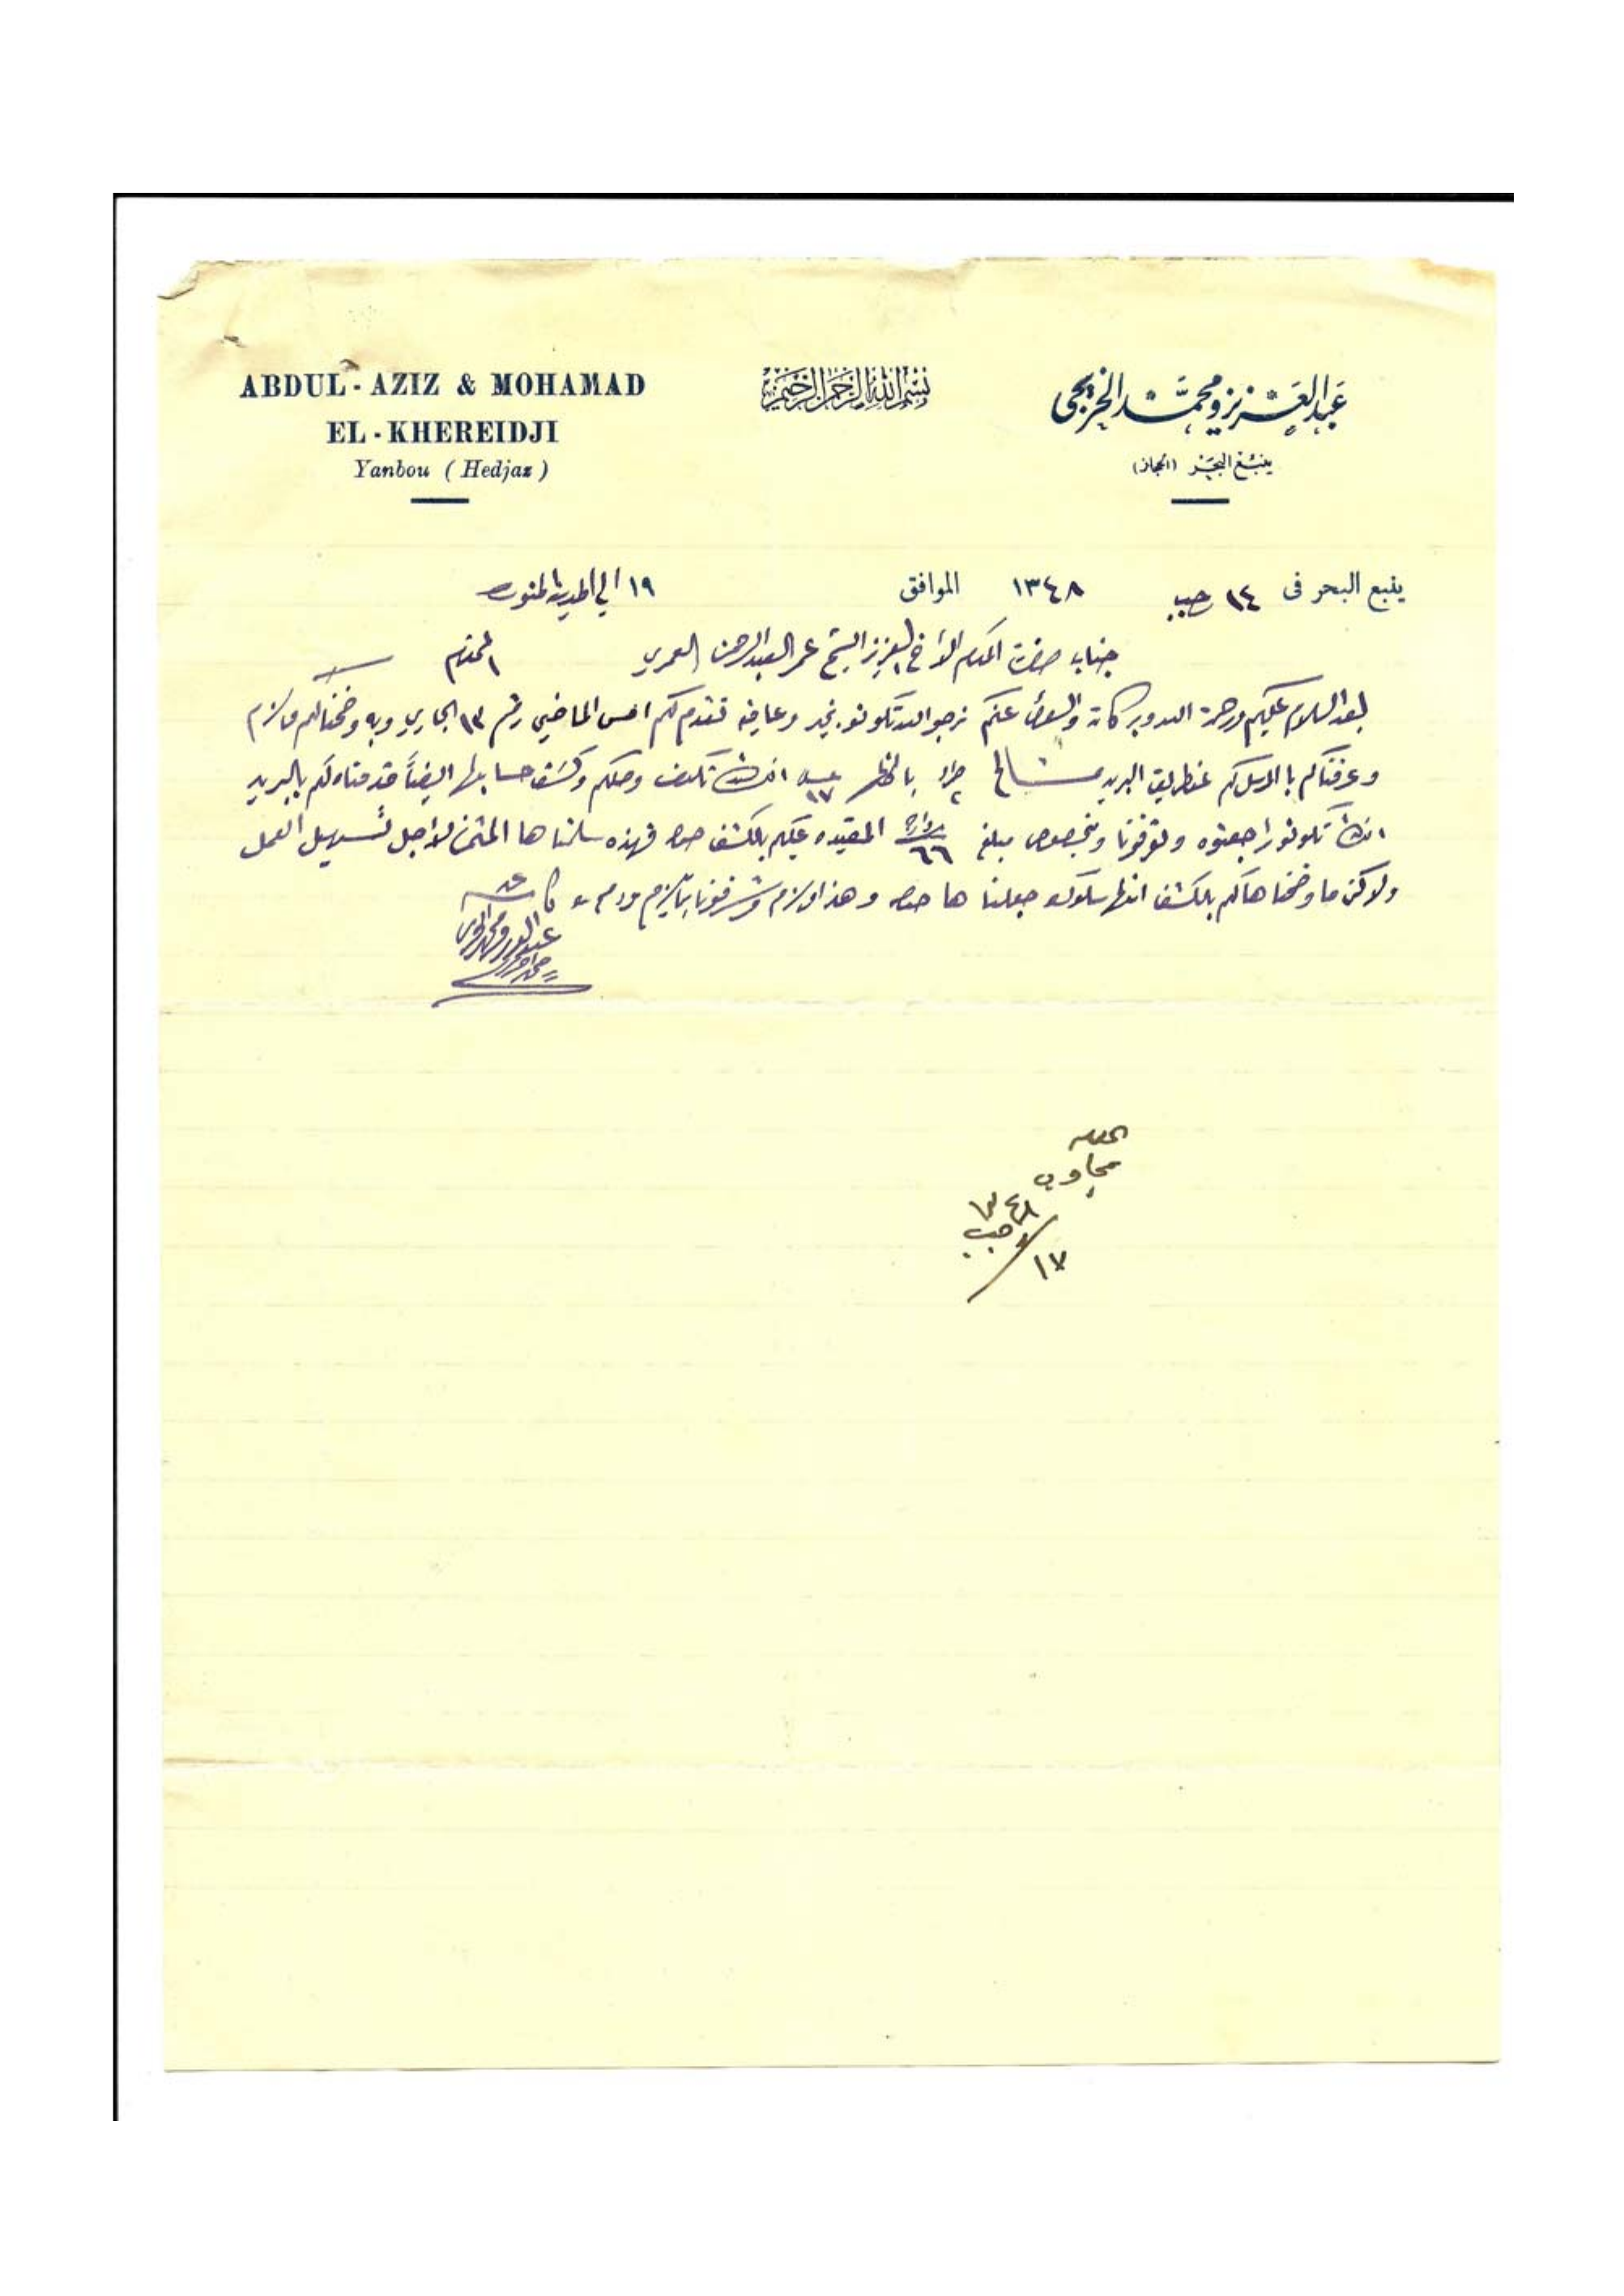 ABDUL - AZIZ & MOHAMAD
EL - KHEREIDJI
Yanbou ( Hedjaz )
بسم الله الرحمن الرحيم
عبد العزيز ومحمد الخريجي
ينبع البحر (الحجاز)
ينبع البحر فى ١٤ رجب ١٣٤٨ الموافق ١٩ الي المدينة المنوره
جناب حضرت المكرم الأخ العزيز الشيخ عمر العبدالرحمن العمري المحترم
بعد السلام عليكم ورحمة الله وبركاته والسؤال عنكم نرجو الله تكونو بخير وعافيه تقدم لكم امس الماضي رقم ١٣ الجاري وبه وضحنا لكم مالزم
وعرفناكم بالمرسل لكم عنطريق البريد انشاء الله تكون وصلكم وكشف حسابها ايضاً قدمناه لكم بالبريد
انشاء الله تكونو راجعتوه وبخصوص مبلغ ٦٦ المقيده عليكم بالكشف فهذه سلمناها لأجل تسهيل العمل
ولاكن ما وضحناها لكم بالكشف انها جعلناها وهذا مالزم وشرفونا بما يلزم ودمتم
عبدالعزيز ومحمد الخريجي
مجاوب
١٧ رجب ٣٤٨